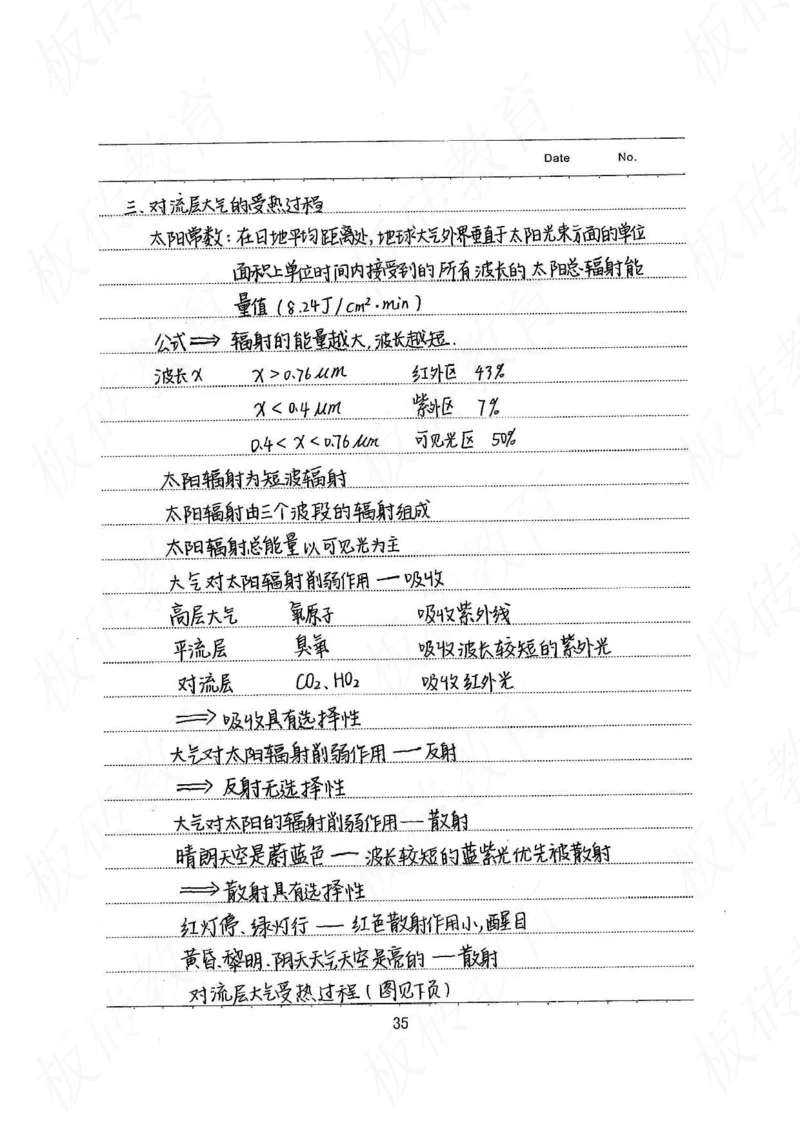 Date No.
三、对流层大气的受热过程
太阳常数：在日地平均距离处，地球大气外界垂直于太阳光束方面的单位
面积上单位时间内接受到的所有波长的太阳总辐射能
量值（8.24J/cm²·min）
公式⇒ 辐射的能量越大，波长越短．
波长x x>0.76μm 红外区 43%
x<0.4μm 紫外区 7%
0.4<x<0.76μm 可见光区 50%
太阳辐射为短波辐射
太阳辐射由三个波段的辐射组成
太阳辐射总能量以可见光为主
大气对太阳辐射削弱作用——吸收
高层大气 氧原子 吸收紫外线
平流层 臭氧 吸收波长较短的紫外光
对流层 CO₂、HO₂ 吸收红外光
⇒吸收具有选择性
大气对太阳辐射削弱作用——反射
⇒反射无选择性
大气对太阳的辐射削弱作用——散射
晴朗天空是蔚蓝色——波长较短的蓝紫光优先被散射
⇒散射具有选择性
红灯停、绿灯行——红色散射作用小，醒目
黄昏、黎明、阴天天气天空是亮的——散射
对流层大气受热过程（图见下页）
35
板砖教育